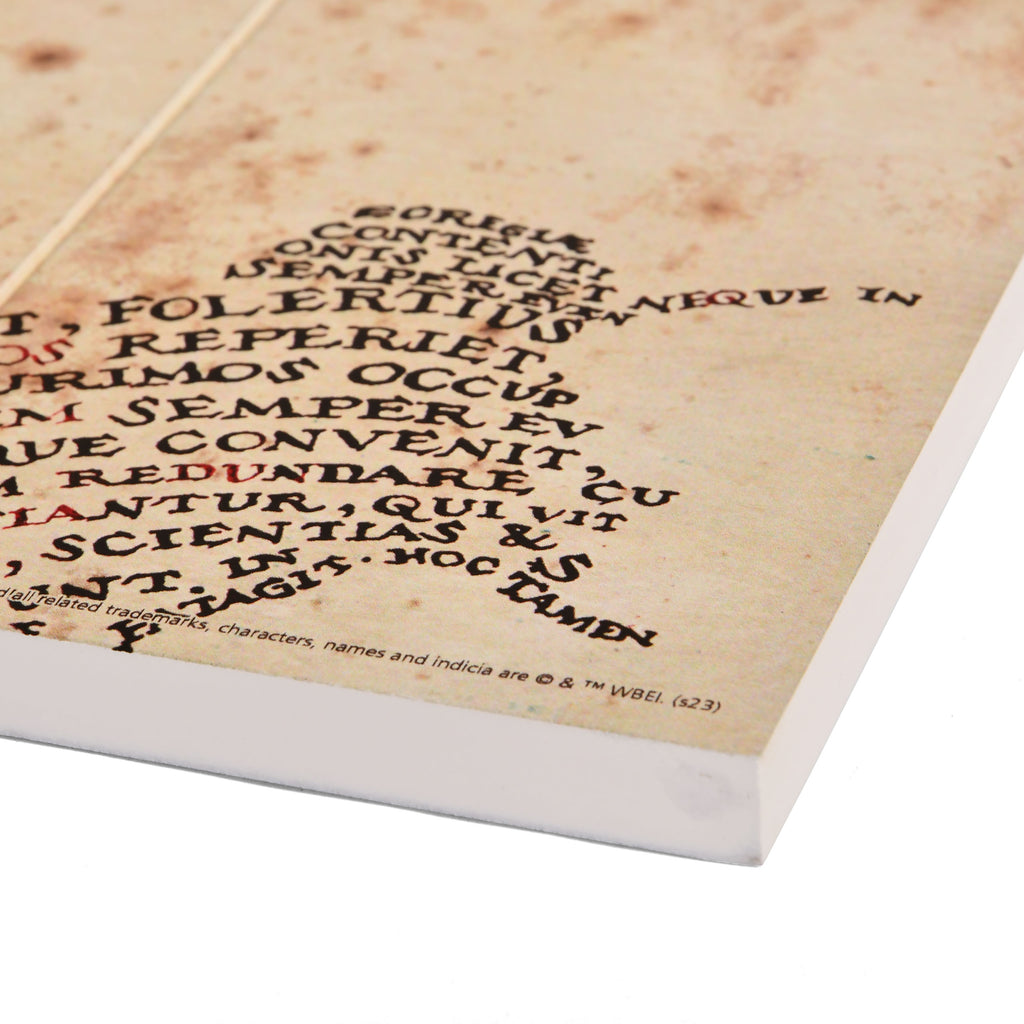 REGIÆ
OCONTENTI
ONIS LICET
SEMPER EV
IN NEQUE IN
T, FOLERTIUS
OS REPERIET,
URIMOS OCCUP
M SEMPER EV
QUE CONVENIT, CU
M REDUNDARE
IANTUR, QUI VIT
, SCIENTIAS & S
NT. IN
TAGIT. HOC TAMEN
d all related trademarks, characters, names and indicia are © & ™ WBEI. (s23)